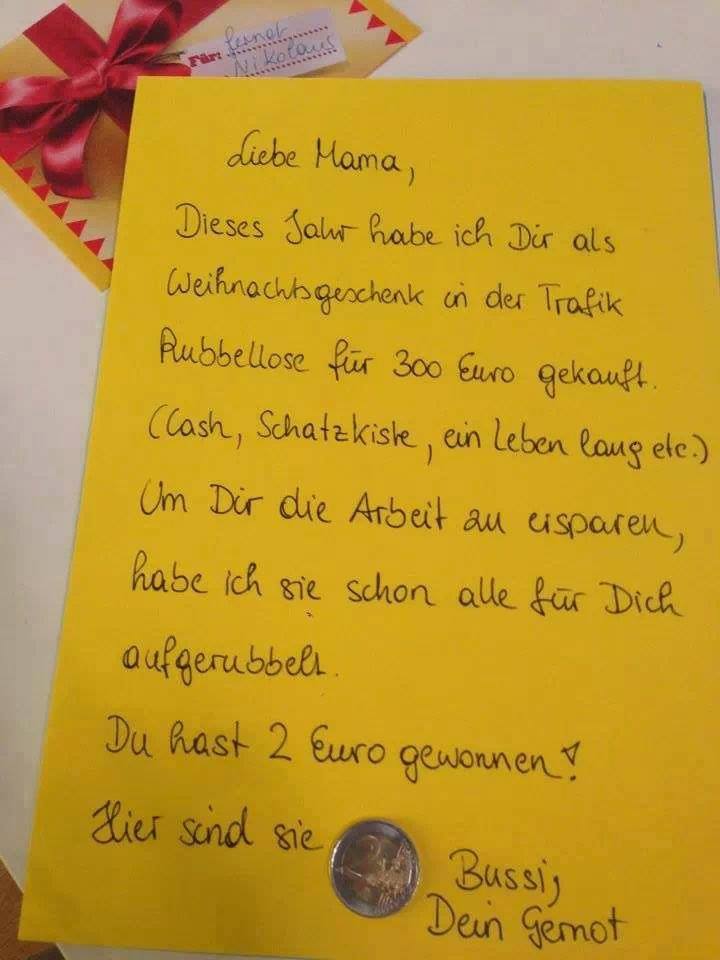 Für: Gernot
Nikolaus
Liebe Mama,
Dieses Jahr habe ich Dir als
Weihnachtsgeschenk in der Trafik
Rubbellose für 300 Euro gekauft.
(Cash, Schatzkiste, ein Leben lang etc.)
Um Dir die Arbeit zu ersparen,
habe ich sie schon alle für Dich
aufgerubbelt.
Du hast 2 Euro gewonnen!
Hier sind sie
2
Bussi,
Dein Gernot